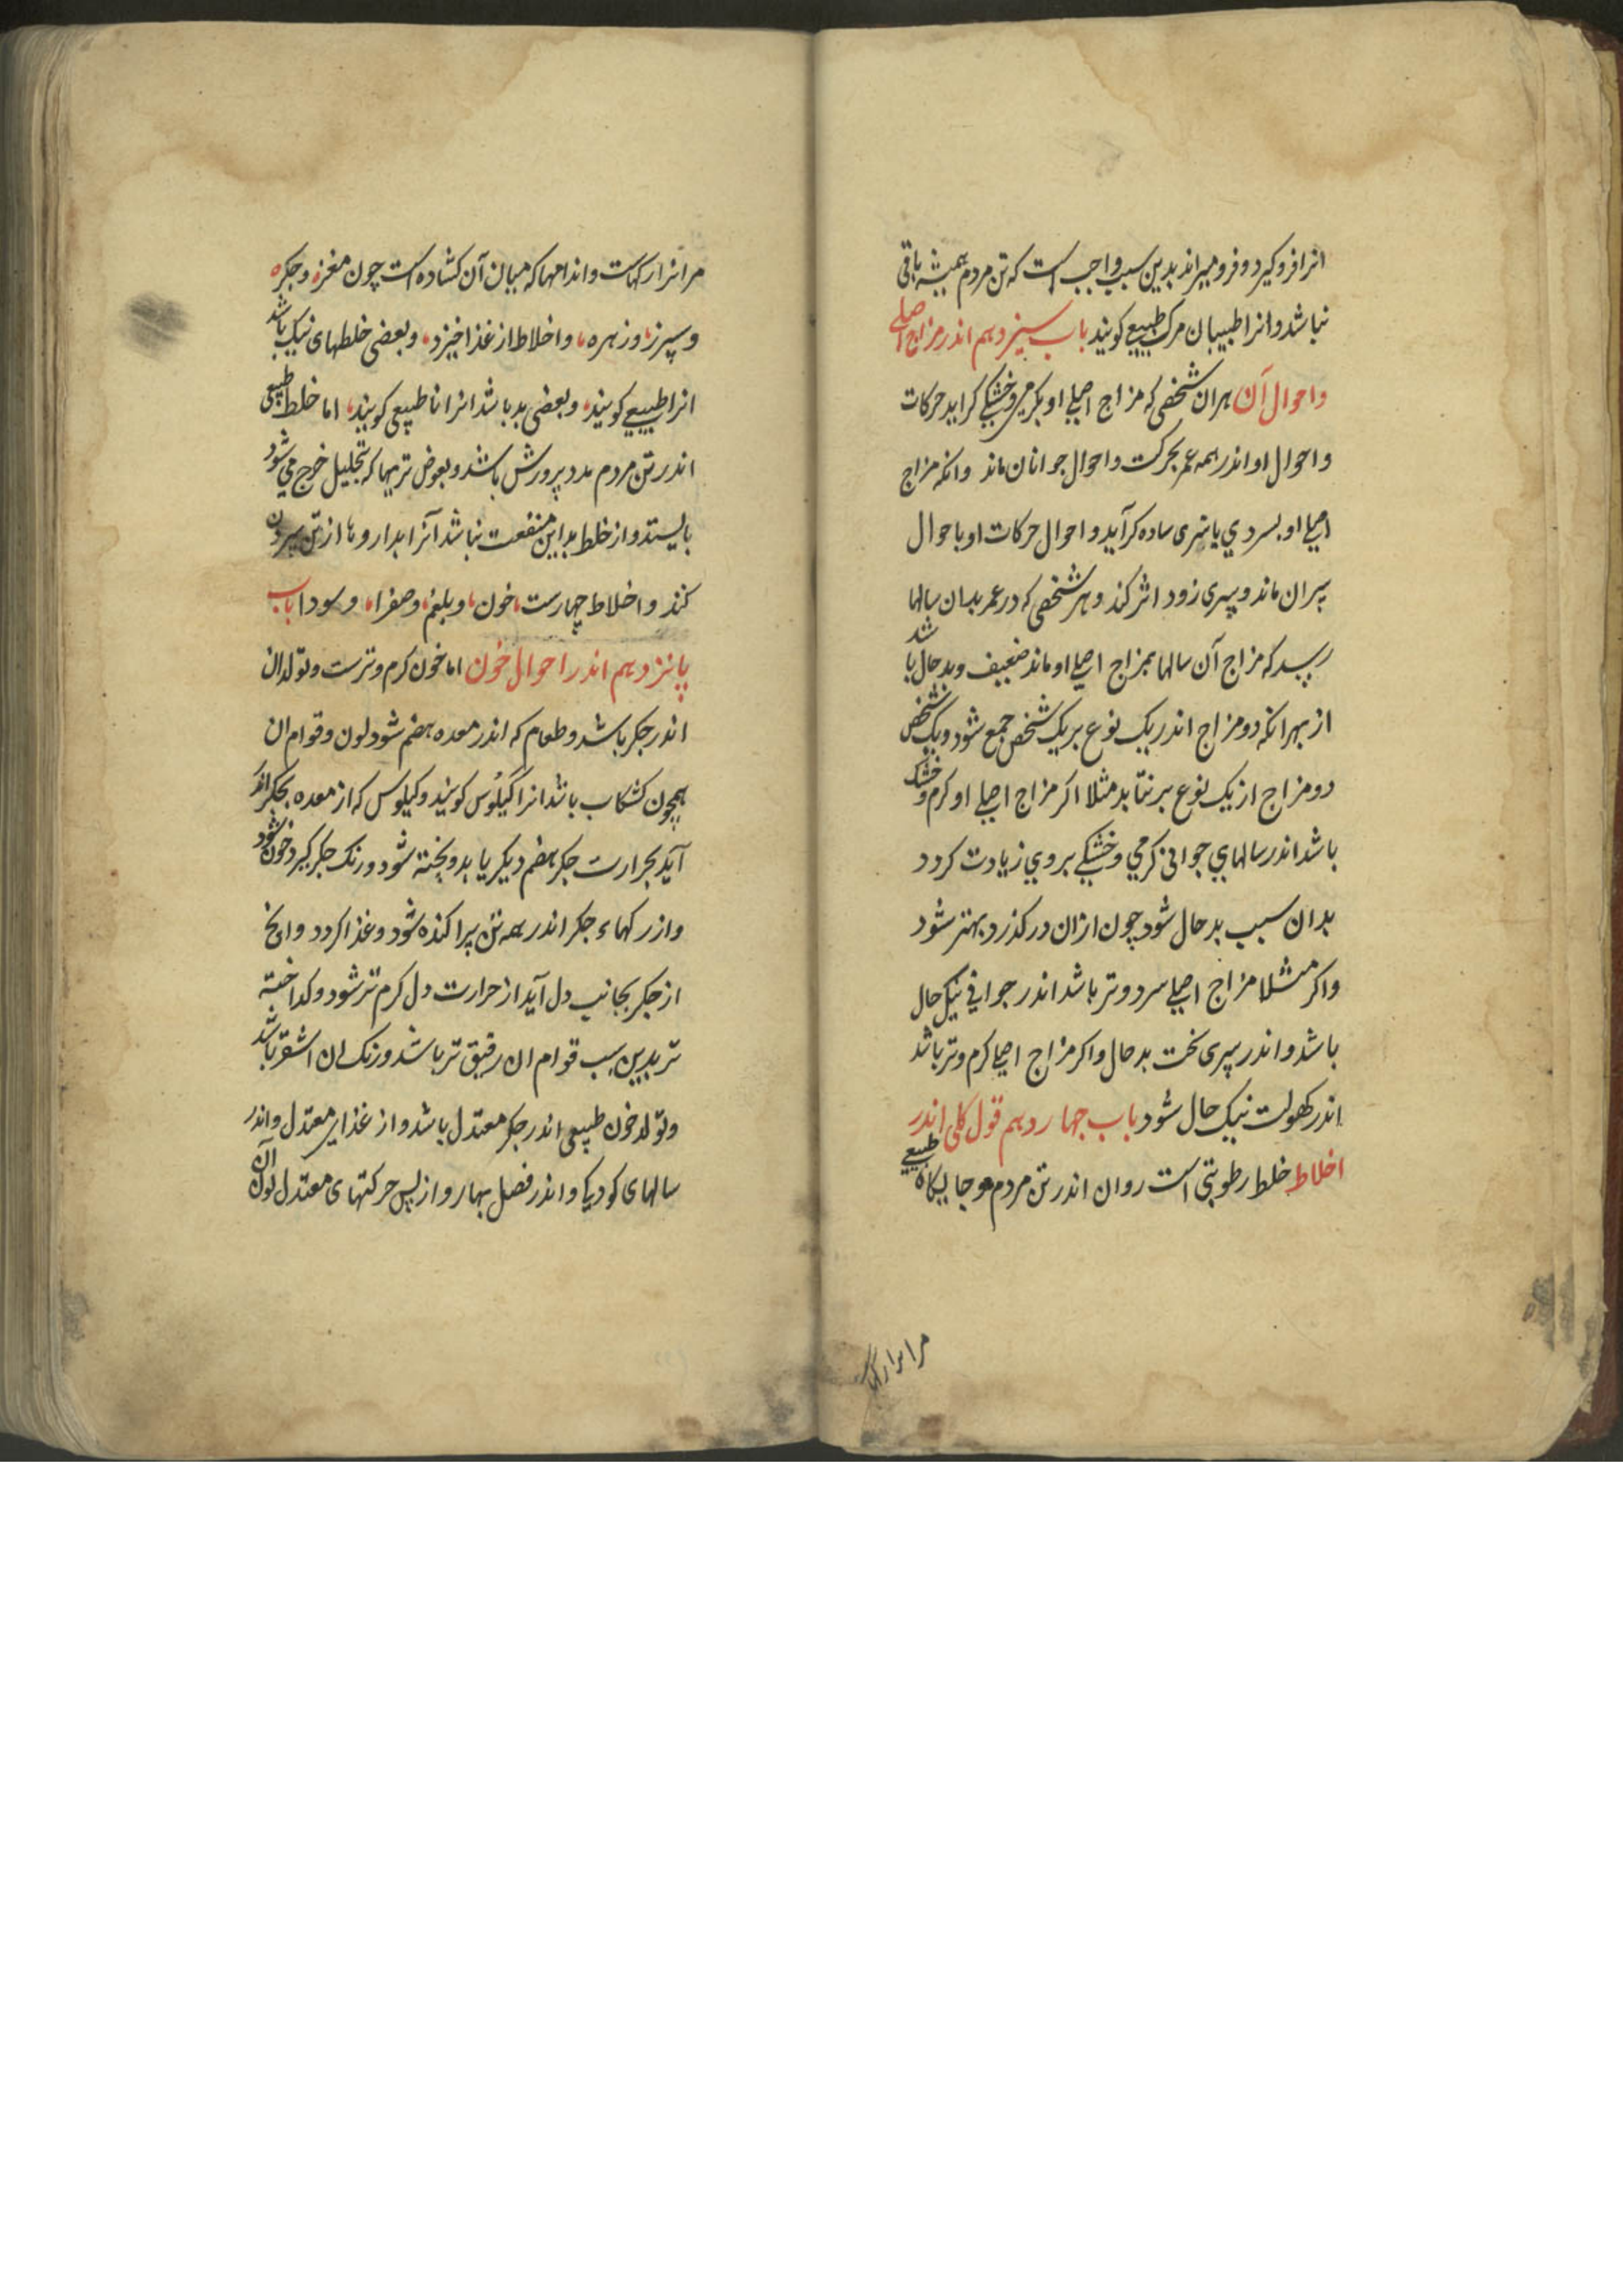 انرا فرو کیرد و فرو میراند بدین سبب واجب است که تن مردم همیشه باقی
نباشد و انرا طبیبان مرک طبیعی کویند باب سیزدهم اندر مزاج اصلی
و احوال آن هر ان شخصی که مزاج اصلی او بکرمی و خشکی کراید حرکات
و احوال او اندر همه عمر بحرکت و احوال جوانان ماند وانکه مزاج
اصلی او بسردي یا سردی ساده کرآید و احوال حرکات او باحوال
پیران ماند و پیری زود اثر کند و هر شخصی که در عمر بدان سالها
رسد که مزاج آن سالها بمزاج اصلی او ماند ضعیف و بدحال باشد
از بهر انکه دو مزاج اندر یک نوع بر یک شخص جمع شود و یک شخص
دو مزاج از یک نوع برنتابد مثلا اکر مزاج اصلی او کرم و خشک
باشد اندر سالهاي جوانی کرمي و خشکی بر وي زیادت کردد
بدان سبب بدحال شود چون ازان درکذرد بهتر شود
واکر مثلا مزاج اصلی سرد و تر باشد اندر جوانی نیک حال
باشد و اندر پیری سخت بدحال واکر مزاج اصلی کرم و تر باشد
اندر کهولت نیک حال شود باب چهاردهم قول کلی اندر
اخلاط خلط رطوبتی است روان اندر تن مردم و جایکاه طبیعی
مر انرا رکهاست
مر انرا رکهاست و اندامها که میان آن کشاده است چون معده و جکر
و سپرز و زهره و اخلاط از غذا خیزد و بعضی خلطهای نیک باشد
انرا طبیعی کویند و بعضی بد باشد انرا نا طبیعی کویند اما خلط طبیعی
اندر تن مردم مدد پرورش باشد و بعوض تریها که بتحلیل خرج می شود
بایستد و از خلط بد این منفعت نباشد آنرا بداروها از تن بیرون
کنند و اخلاط چهارست خون و بلغم و صفرا و سودا باب
پانزدهم اندر احوال خون اما خون کرم و ترست و تولد ان
اندر جکر باشد و طعام که اندر معده هضم شود لون و قوام ان
همچون کشکاب باشد انرا کیلُوس کویند و کیلوس که از معده بجکر اندر
آید بحرارت جکر هضم دیکر یابد و پخته شود و رنک جکر کیرد خون شود
و از رکهاء جکر اندر همه تن پراکنده شود و غذا کردد وانچ
از جکر بجانب دل آید از حرارت دل کرم تر شود و کداخته
تر بدین سبب قوام ان رقیق تر باشد و رنک ان اشقر باشد
و تولد خون طبیعی اندر جکر معتدل باشد و از غذاي معتدل و اندر
سالهای کودکی و اندر فصل بهار و از پس حرکتهای معتدل لون آن